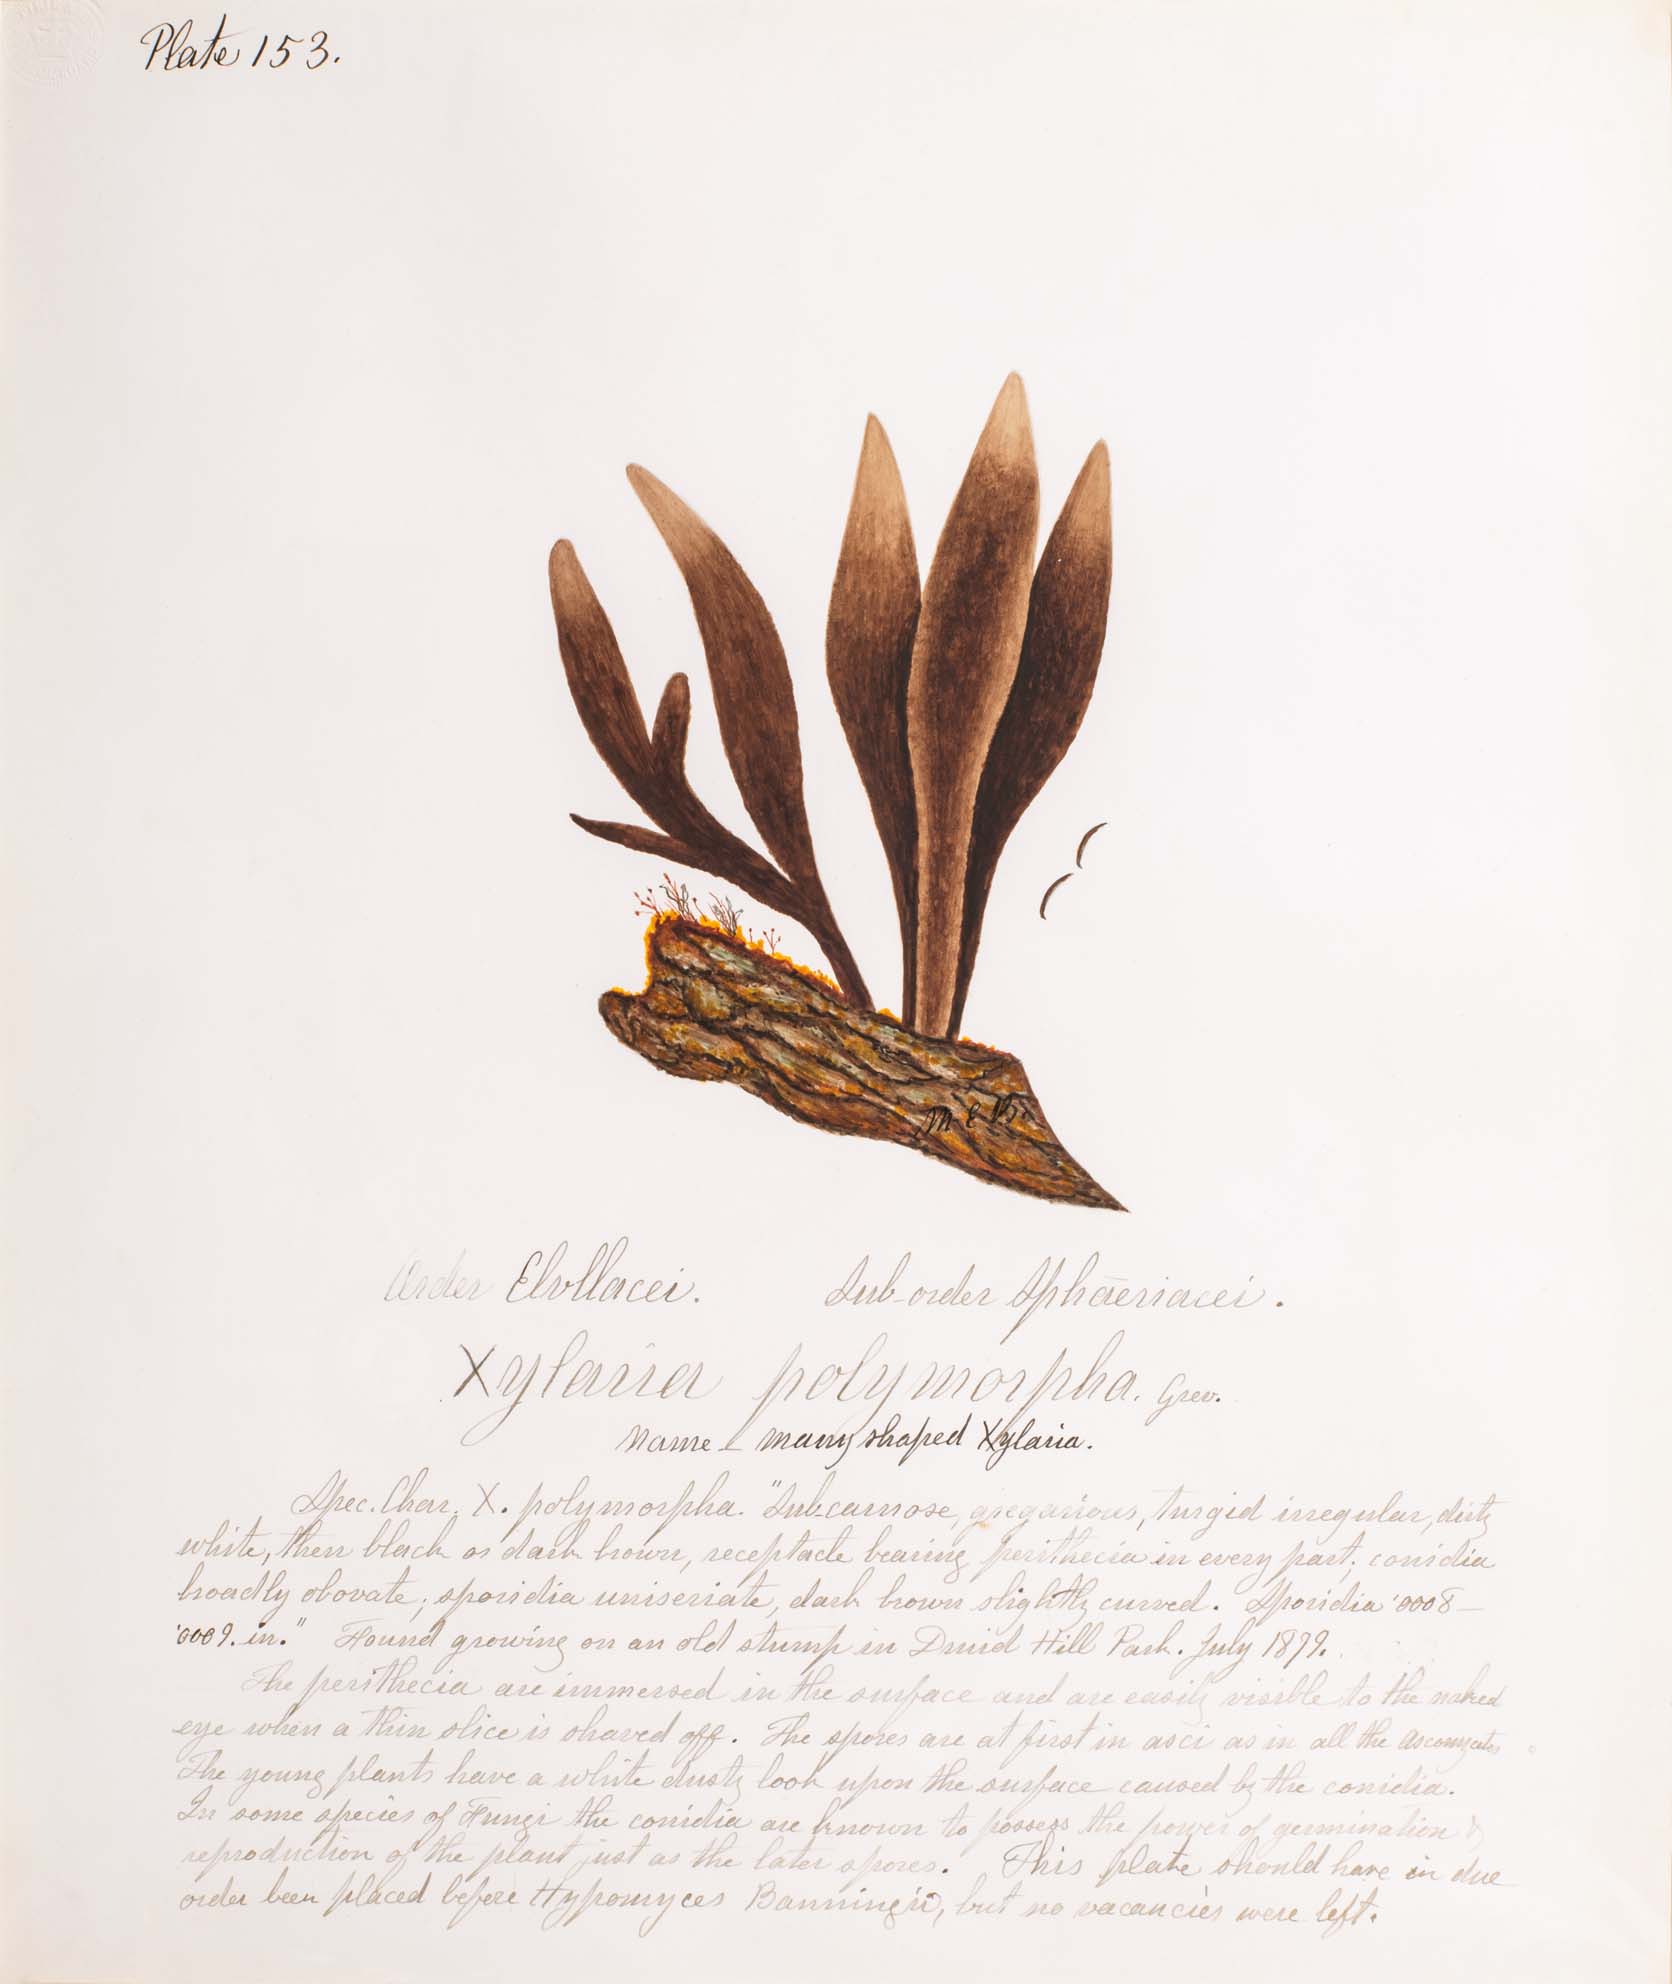 Plate 153.
M. E. B.
Order Elvllacei. Sub-order Sphaeriacei.
Xylaria polymorpha. Grev.
Name – many shaped Xylaria.
Spec. Char. X. polymorpha. "Sub-carnose, gregarious, turgid irregular, dirty
white, then black or dark brown, receptacle bearing perithecia in every part; conidia
broadly obovate; sporidia uniseriate, dark brown slightly curved. Sporidia '0008–
'0009. in." Found growing on an old stump in Druid Hill Park. July 1879.
The perithecia are immersed in the surface and are easily visible to the naked
eye when a thin slice is shaved off. The spores are at first in asci as in all the Ascomycetes
The young plants have a white dusty look upon the surface caused by the conidia.
In some species of Fungi the conidia are known to possess the power of germination &
reproduction of the plant just as the later spores. This plate should have in due
order been placed before Hypomyces Banningii, but no vacancies were left.